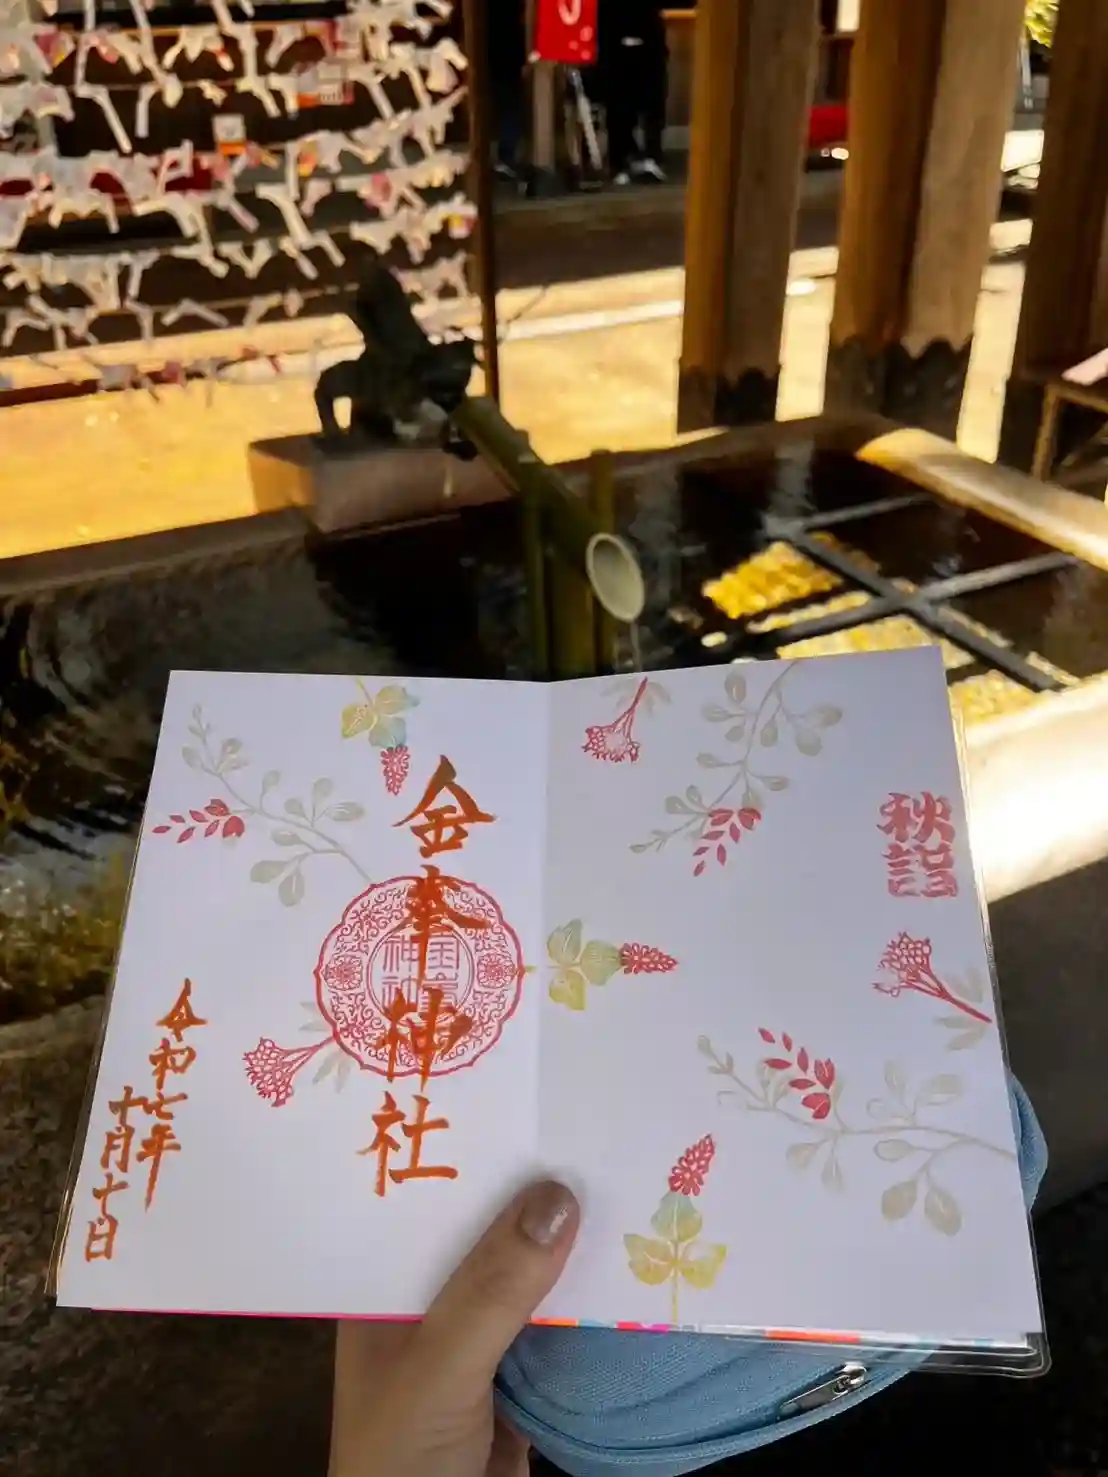 秋詣
金峯神社
令和七年
十月十日